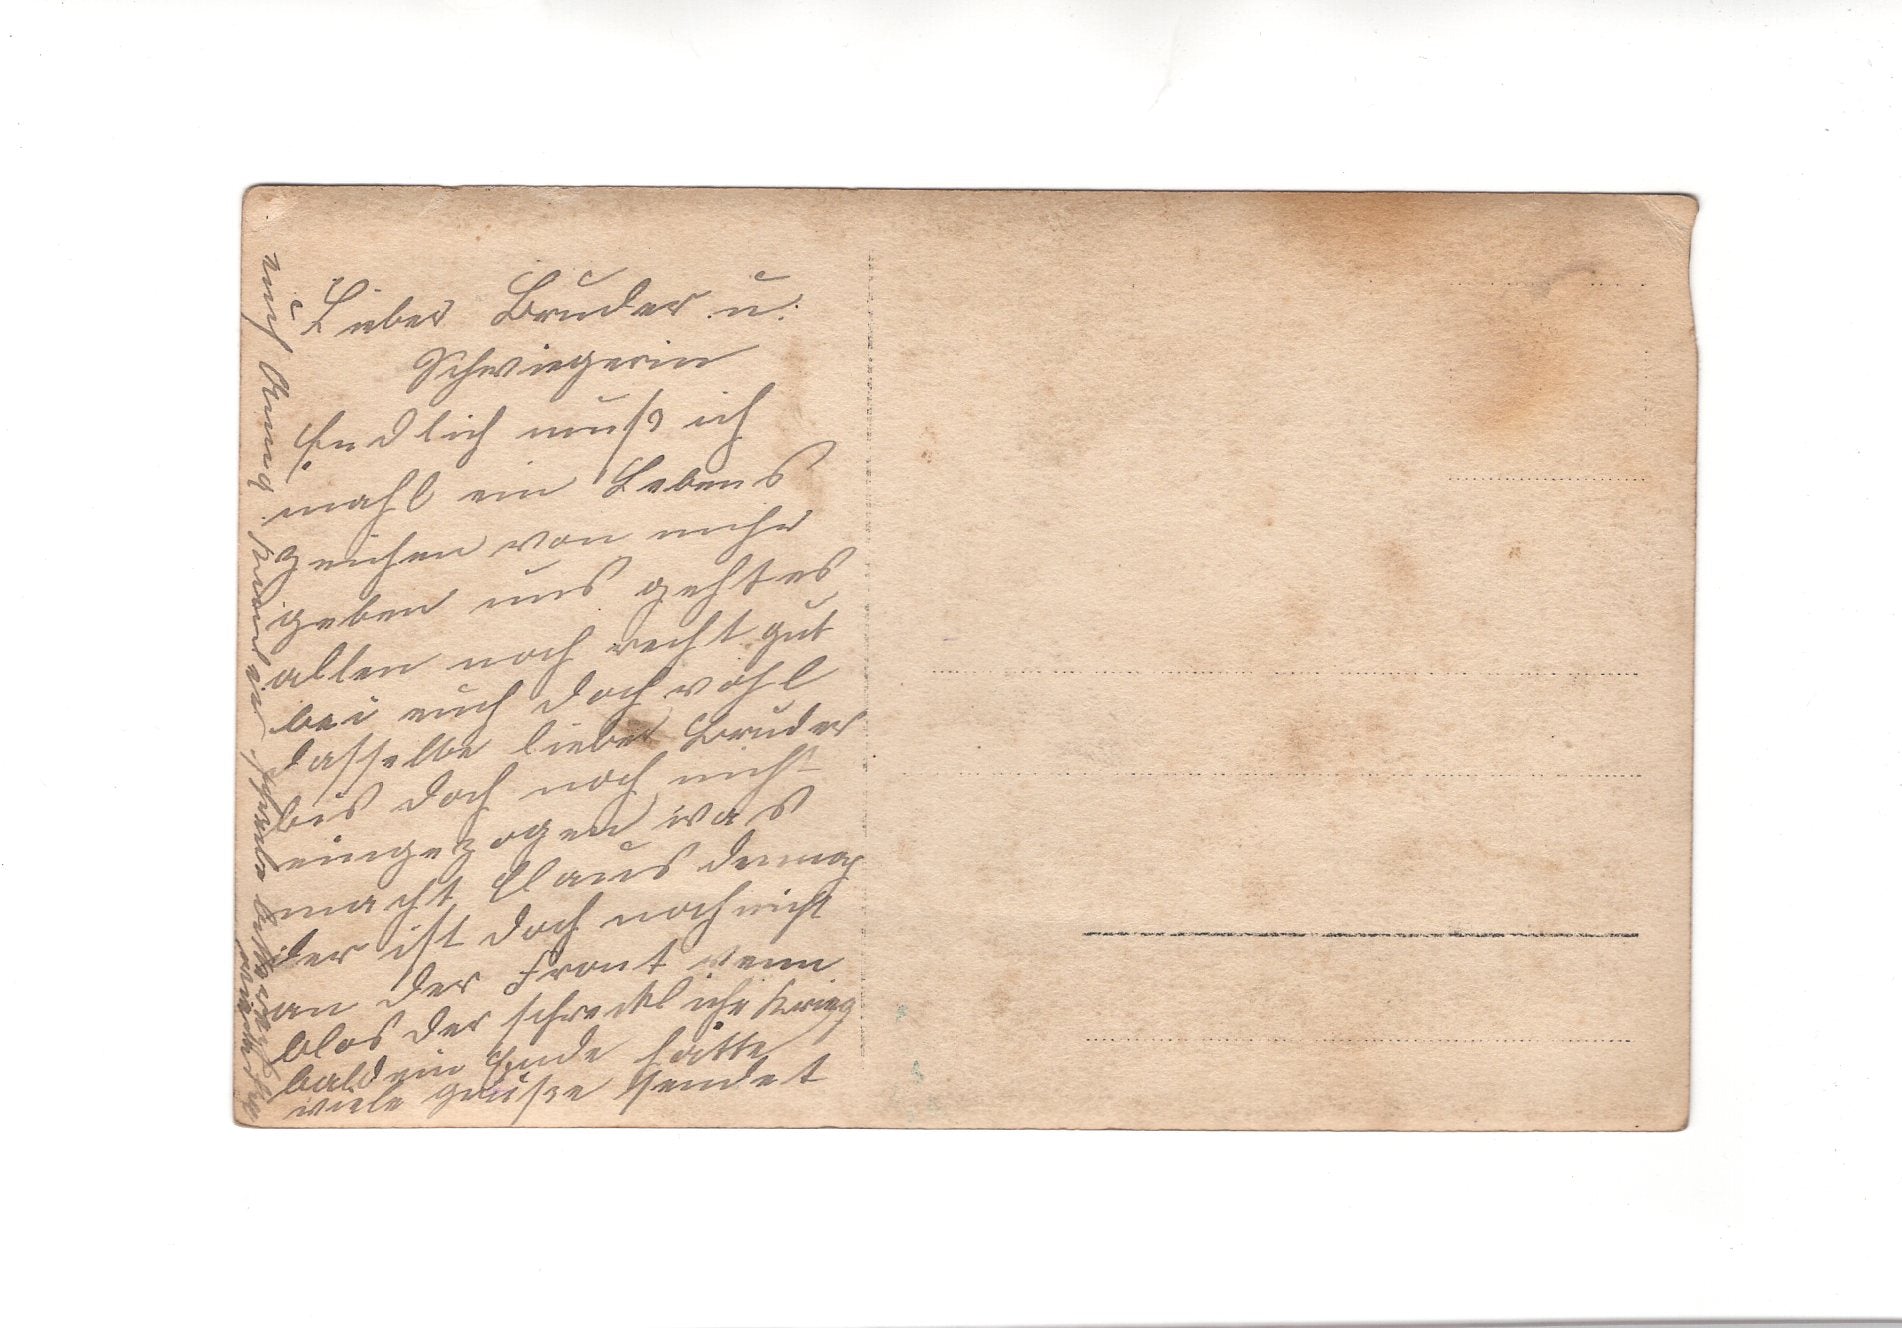 Lieber Bruder u.
Schwiegerin
Endlich muß ich
mahl ein Lebens
zeichen von mehr
geben uns geht es
allen noch recht gut
bei euch doch wohl
dasselbe lieber Bruder
bis doch noch nicht
eingezogen was
macht Claus denn
der ist doch noch nicht
an der Front wenn
blos der schreckliche Krieg
bald ein Ende hätte
viele grüße sendet
euch Anna